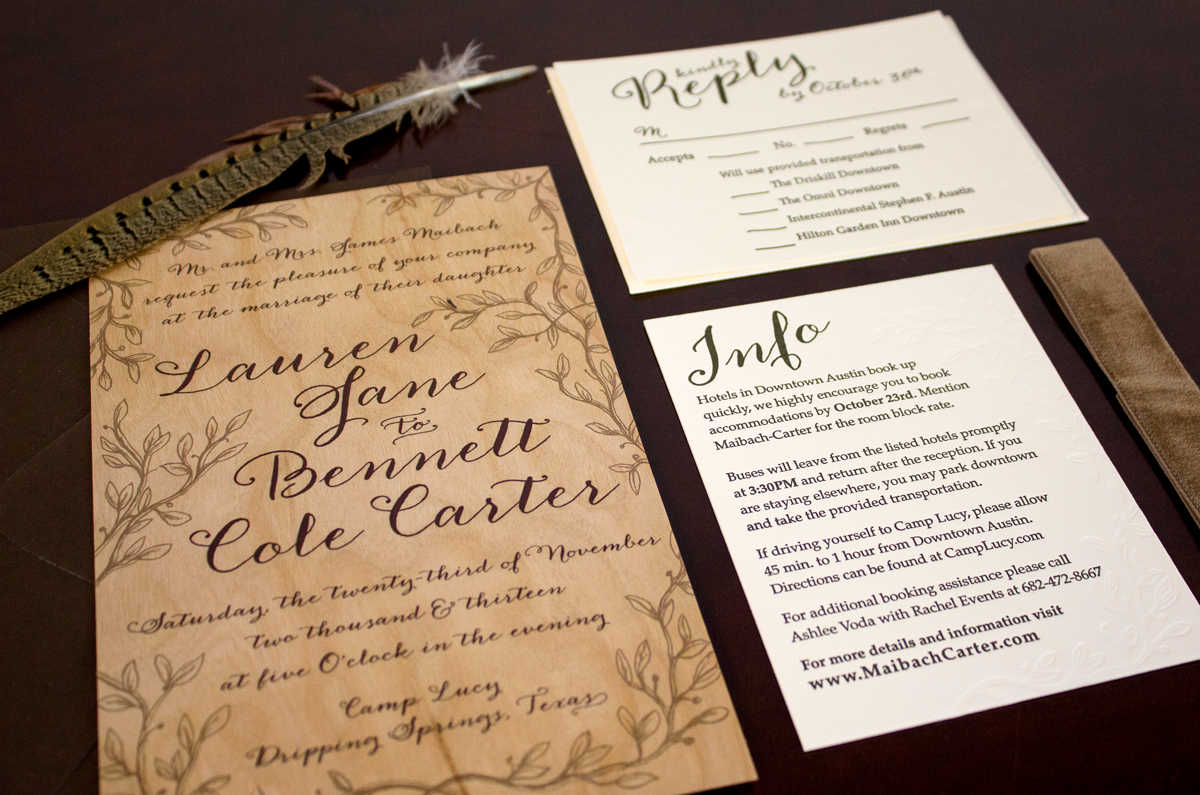 Mr. and Mrs. James Maibach
request the pleasure of your company
at the marriage of their daughter
Lauren
Jane
to
Bennett
Cole Carter
Saturday, the twenty-third of November
two thousand & thirteen
at five O'clock in the evening
Camp Lucy
Dripping Springs, Texas
kindly
Reply
by October 30th
M
Accepts No. Regrets
Will use provided transportation from
The Driskill Downtown
The Omni Downtown
Intercontinental Stephen F. Austin
Hilton Garden Inn Downtown
Info
Hotels in Downtown Austin book up
quickly, we highly encourage you to book
accommodations by October 23rd. Mention
Maibach-Carter for the room block rate.
Buses will leave from the listed hotels promptly
at 3:30PM and return after the reception. If you
are staying elsewhere, you may park downtown
and take the provided transportation.
If driving yourself to Camp Lucy, please allow
45 min. to 1 hour from Downtown Austin.
Directions can be found at CampLucy.com
For additional booking assistance please call
Ashlee Voda with Rachel Events at 682-472-8667
For more details and information visit
www.MaibachCarter.com